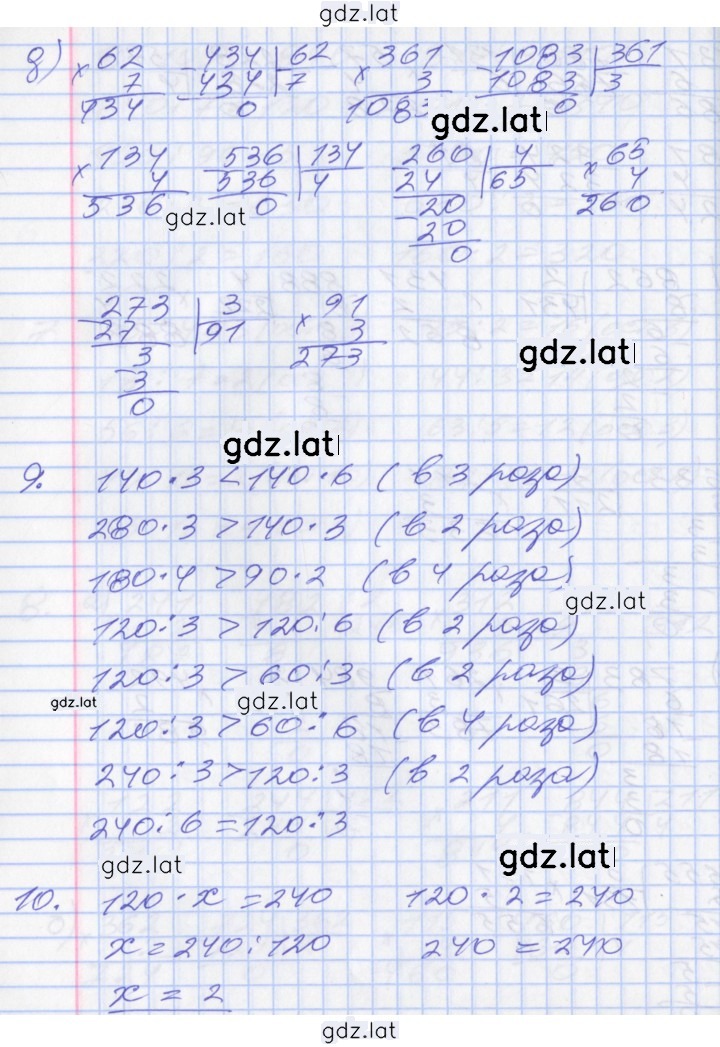 gdz.lat
д) × 62 - 434 | 62 × 361 - 1083 | 361
7 434 7 3 1083 3
434 0 1083 0
gdz.lat
× 134 - 536 | 134 - 260 | 4 × 65
4 536 4 24 65 4
536 0 - 20 260
gdz.lat
20
0
- 273 | 3 × 91
27 91 3
- 3 273
gdz.lat
3
0
gdz.lat
9. 140 · 3 < 140 · 6 (в 3 раза)
280 · 3 > 140 · 3 (в 2 раза)
180 · 4 > 90 · 2 (в 4 раза)
gdz.lat
120 : 3 > 120 : 6 (в 2 раза)
120 : 3 > 60 : 3 (в 2 раза)
gdz.lat gdz.lat
120 : 3 > 60 : 6 (в 4 раза)
240 : 3 > 120 : 3 (в 2 раза)
240 : 6 = 120 : 3
gdz.lat gdz.lat
10. 120 · x = 240 120 · 2 = 240
x = 240 : 120 240 = 240
x = 2
gdz.lat